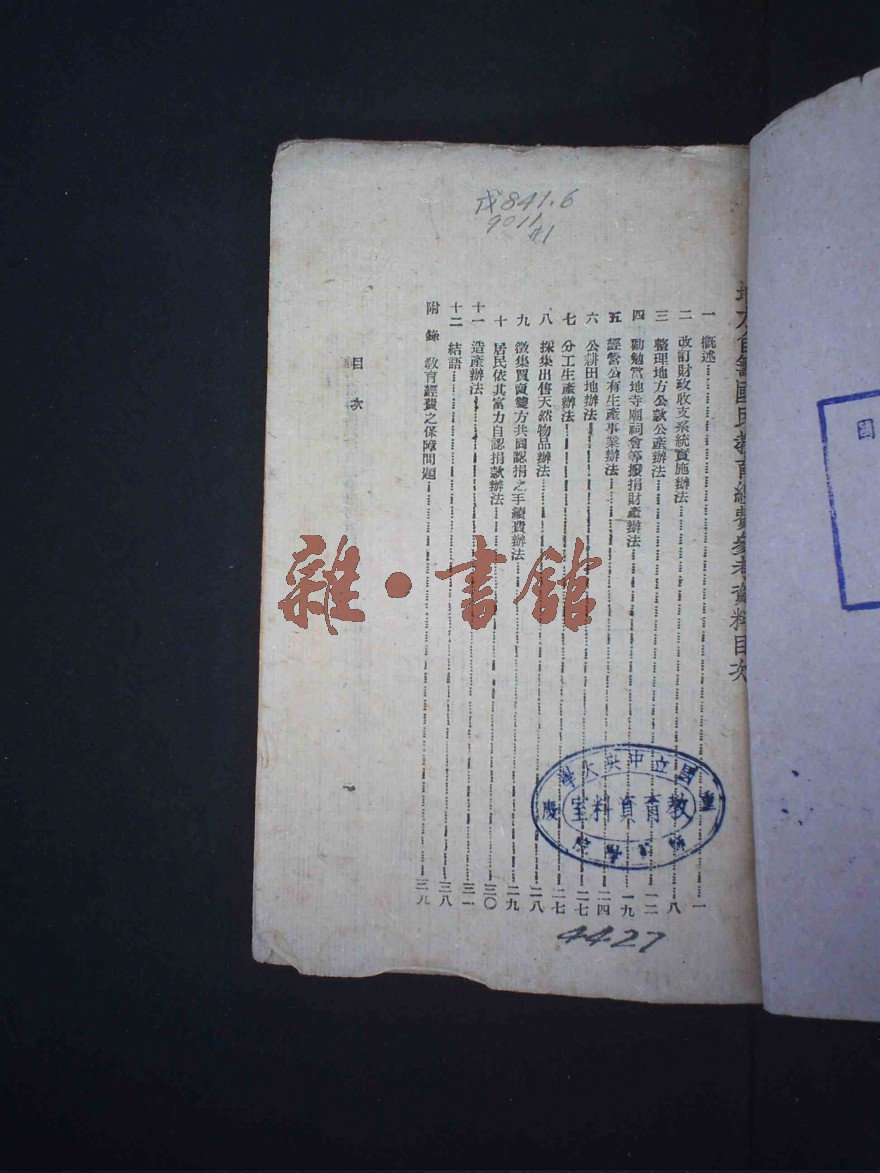 841.6
9011
地方自籌國民教育經費參考資料目次
一 概述……一
二 改訂財政收支系統實施辦法……八
三 整理地方公款公產辦法……一二
四 勸勉當地寺廟祠會等撥捐財產辦法……一九
五 經營公有生產事業辦法……二四
六 公耕田地辦法……二七
七 分工生產辦法……二七
八 採集出售天然物品辦法……二八
九 徵集買賣雙方共同認捐之手續費辦法……二九
十 居民依其富力自認捐款辦法……三〇
十一 造產辦法……三一
十二 結語……三八
附錄 教育經費之保障問題……三九
目次
一
雜·書館
國立中央大學
重慶
教育資料室
師範學院
4427
國